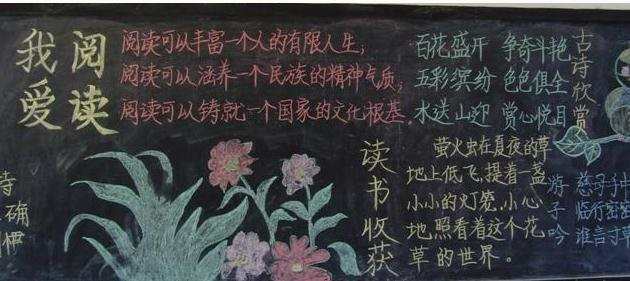 我爱
阅读
阅读可以丰富一个人的有限人生，
阅读可以涵养一个民族的精神气质，
阅读可以铸就一个国家的文化根基。
百花盛开 争奇斗艳
五彩缤纷 色色俱全
水送山迎 赏心悦目
古诗欣赏
读书收获
萤火虫在夏夜的草
地上低飞，提着一盏
小小的灯笼，小心
地照看着这个花
草的世界。
游子吟
慈母手中
临行密密
谁言寸草